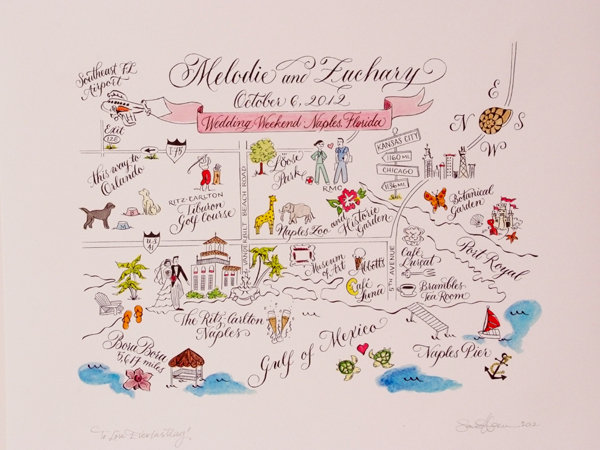 Melodie and Zachary
October 6, 2012
Wedding Weekend Naples, Florida
Southeast FL
Airport
Exit
I-75
This way to
Orlando
RITZ-CARLTON
Tiburon
Golf Course
VANDERBILT BEACH ROAD
Loose
Park
RMO
KANSAS CITY
1160 MI
CHICAGO
1136 MI
N
E
S
W
Botanical
Garden
Naples Zoo and
Historic
Garden
U.S.
41
Museum
of Art
Abbott's
Café
Luna
5TH AVENUE
Café
Lurcat
Port Royal
Brambles
Tea Room
The Ritz-Carlton
Naples
Gulf of Mexico
Naples Pier
Bora Bora
5,617 miles
To Love Everlasting!
2012